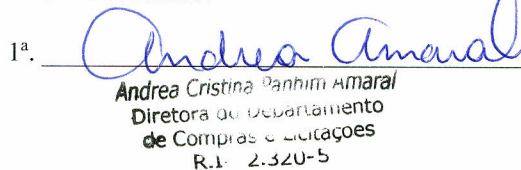 1ª. Andrea Amaral
Andrea Cristina Panhim Amaral
Diretora do Departamento
de Compras e Licitações
2.320-5